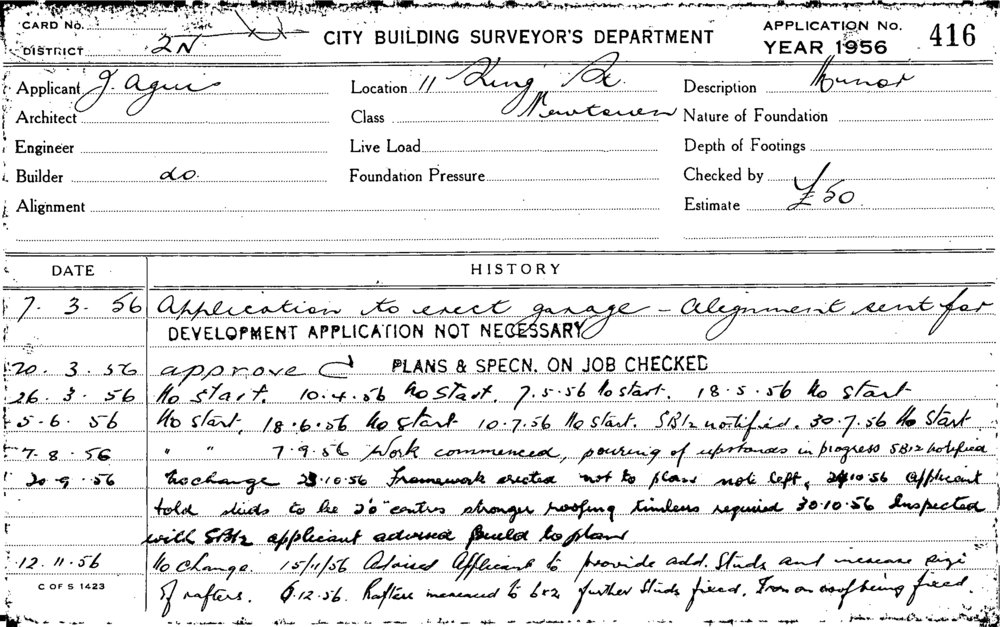 CARD No.
DISTRICT 2N
CITY BUILDING SURVEYOR'S DEPARTMENT
APPLICATION No. 416
YEAR 1956
Applicant J. Agius Location 11 King St. Description Minor
Architect Class Newtown Nature of Foundation
Engineer Live Load Depth of Footings
Builder do. Foundation Pressure Checked by
Alignment Estimate £50
DATE HISTORY
7. 3. 56 Application to erect garage - Alignment sent for
DEVELOPMENT APPLICATION NOT NECESSARY
20. 3. 56 approve PLANS & SPECN. ON JOB CHECKED
26. 3. 56 No start. 10.4.56 No Start. 7.5.56 No start. 18.5.56 No start
5-6. 56 No start, 18.6.56 No start 10.7.56 No start. SB12 notified. 30.7.56 No start
7-8. 56 " " 7.9.56 Work commenced, pouring of upstands in progress SB12 notified
20.9.56 No change 23.10.56 Framework erected not to plan note left, 24.10.56 applicant
told studs to be 2'0" centres stronger roofing timbers required 30.10.56 Inspected
with SB12 applicant advised build to plan
12.11.56 No change. 15/11/56 Advised Applicant to provide add. Studs and increase size
of rafters. .12.56. Rafters increased to 6x2 further Studs fixed. Iron on roof being fixed.
C OF S 1423